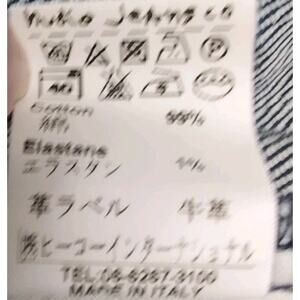 Cotton
綿 99%
Elastane
エラスタン 1%
革ラベル 牛革
㈱ヒーコーインターナショナル
TEL:06-6267-3100
MADE IN ITALY